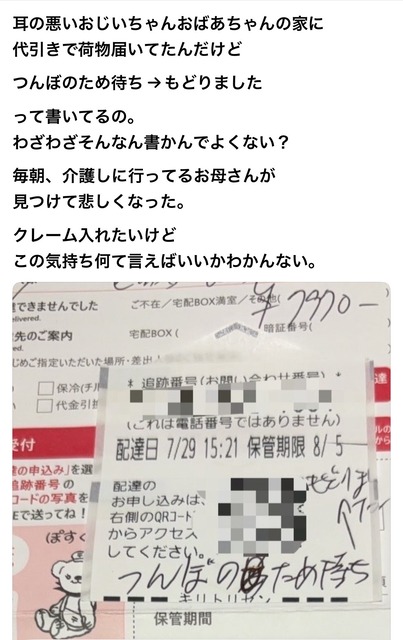 耳の悪いおじいちゃんおばあちゃんの家に
代引きで荷物届いてたんだけど
つんぼのため待ち→もどりました
って書いてるの。
わざわざそんなん書かんでよくない？
毎朝、介護しに行ってるお母さんが
見つけて悲しくなった。
クレーム入れたいけど
この気持ち何て言えばいいかわかんない。
できませんでした
ご不在／宅配BOX満室／その他(
¥7970-
livered.
先のご案内
宅配BOX (
暗証番号(
じめご指定いただいた場所・差出
保冷(チル
代金引換
* 追跡番号(お問い合わせ番号) *
(これは電話番号ではありません)
配達日 7/29 15:21 保管期限 8/ 5
受付
達の申込み」を選
追跡番号の
コードの写真を
Eで送ってね！
配達の
お申し込みは、
右側のQRコード
からアクセス
してください。
ぽすく
つんぼのため待ち
キリトリセン
保管期間